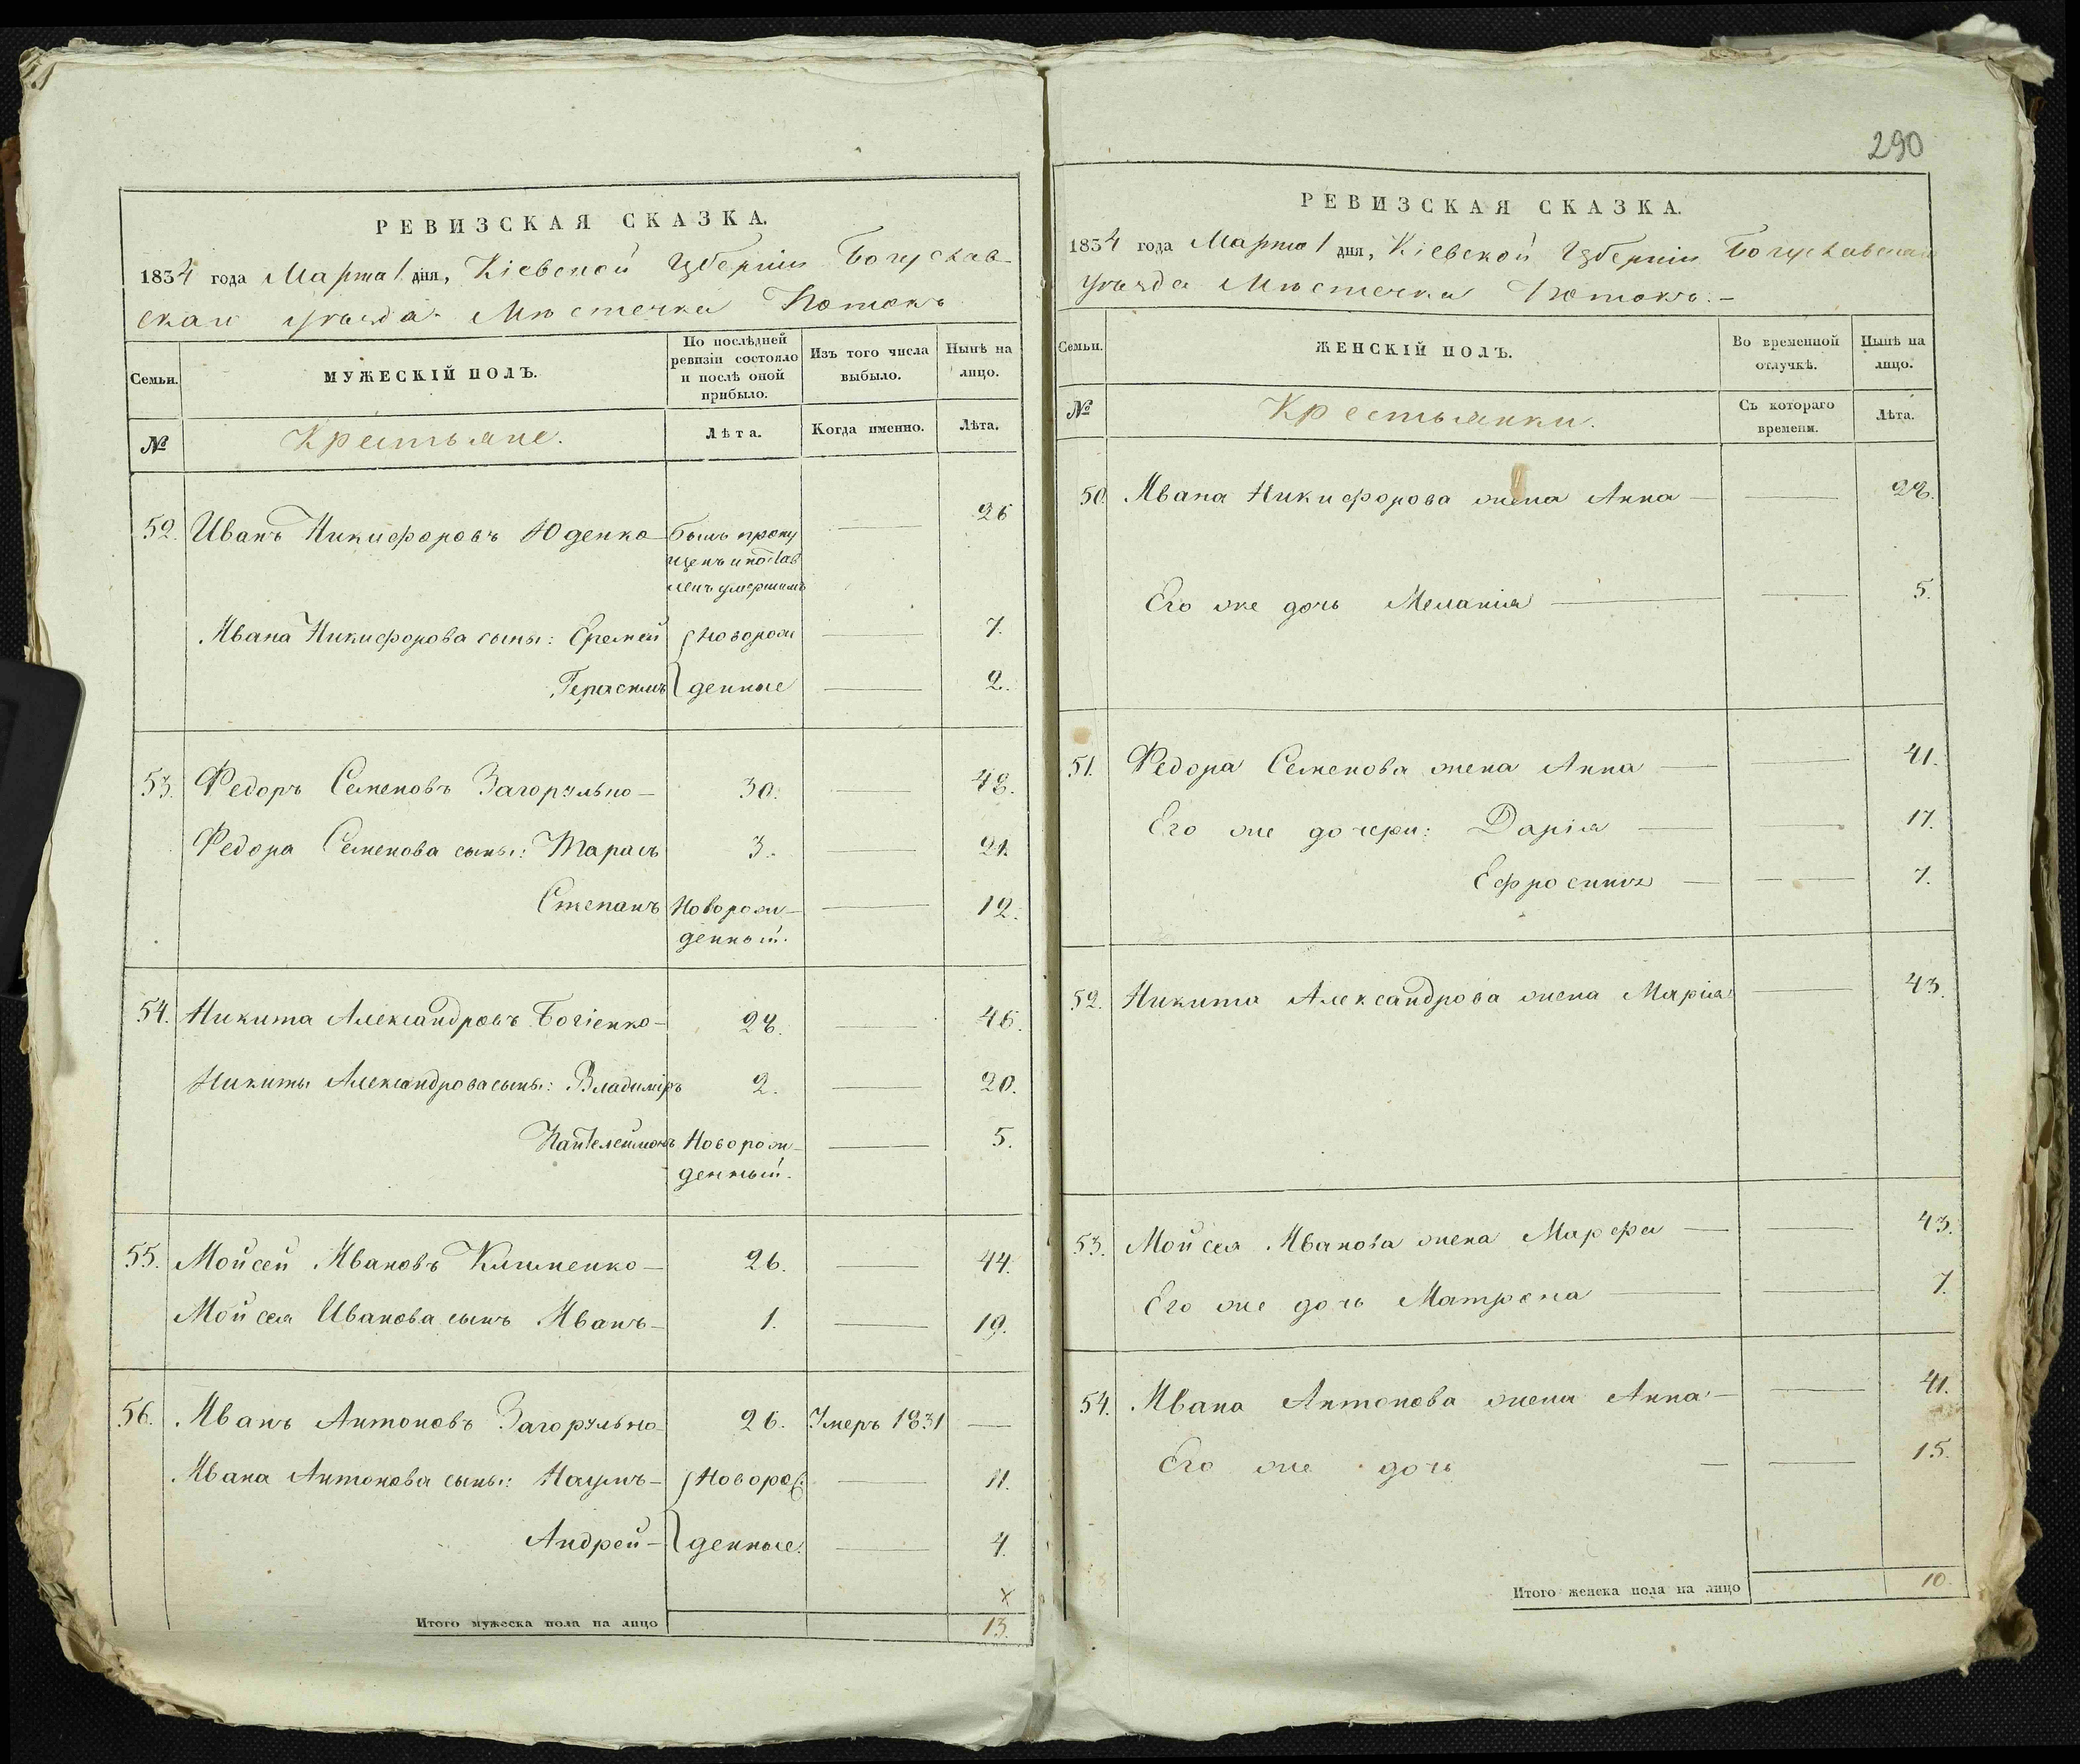 РЕВИЗСКАЯ СКАЗКА.
1834 года Марта 1 дня, Кіевской Губерніи Богуслав-
скаго уѣзда Мѣстечка Потокъ
Семьи.
МУЖЕСКІЙ ПОЛЪ.
По послѣдней ревизіи состояло и послѣ оной прибыло.
Изъ того числа выбыло.
Нынѣ на лицо.
№
Крестьяне.
Лѣта.
Когда именно.
Лѣта.
52. Иванъ Никифоровъ Юденко былъ пропу — 26
щенъ и поставленъ умершимъ
Ивана Никифорова сыны: Еремей Новорож — 7.
Герасимъ денные — 2.
53. Федоръ Семеновъ Загорулько — 30. — 48.
Федора Семенова сыны: Тарасъ 3. — 21.
Степанъ Новорож- — 12.
денный.
54. Никита Александровъ Богіенко — 28. — 46.
Никиты Александрова сыны: Владиміръ 2. — 20.
Пантелеймонъ Новорож- — 5.
денный.
55. Мойсей Ивановъ Клименко — 26. — 44.
Мойсея Иванова сынъ Иванъ — 1. — 19.
56. Иванъ Антоновъ Загорулько 26. Умеръ 1831 —
Ивана Антонова сыны: Наумъ — Новорож — 11.
Андрей — денные. — 4.
х
Итого мужеска пола на лицо 13.
290
РЕВИЗСКАЯ СКАЗКА.
1834 года Марта 1 дня, Кіевской Губерніи Богуславскаго
уѣзда Мѣстечка Потокъ. —
Семьи.
ЖЕНСКІЙ ПОЛЪ.
Во временной отлучкѣ.
Нынѣ на лицо.
№
Крестьянки.
Съ котораго времени.
Лѣта.
50. Ивана Никифорова жена Анна — — 28.
Его же дочь Меланія — — 5.
51. Федора Семенова жена Анна — — 41.
Его же дочери: Дарія — — 17.
Ефросинія — — 7.
52. Никита Александрова жена Марія — 43.
53. Мойсея Иванова жена Марфа — — 43.
Его же дочь Матрона — — 7.
54. Ивана Антонова жена Анна — — 41.
Его же дочь — — 15.
Итого женска пола на лицо 10.